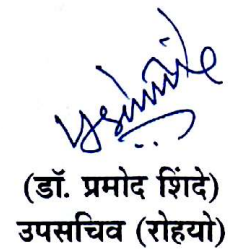 (डॉ. प्रमोद शिंदे)
उपसचिव (रोहयो)